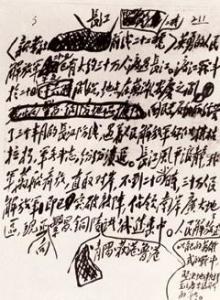 长江
(新华社 前线二十二日 英勇的人民
解放军 已有大约三十万人渡过长江。渡江战斗
于二十日午夜开始,地点在芜湖安庆之间。
国民党反动派经营
了三个半月的长江防线,遇着人民解放军好似摧枯
拉朽,军无斗志,纷纷溃退。长江风平浪静,我
军万船齐放,直取对岸,不到二十四小时,三十万人民
解放军即已突破敌阵,占领南岸广大地
区,现正向繁昌、铜陵、青阳、荻港、鲁港诸城进击中。人民解放军正
以自己的英雄
式的战斗,
坚决地执行
毛主席朱总司令
的命令。